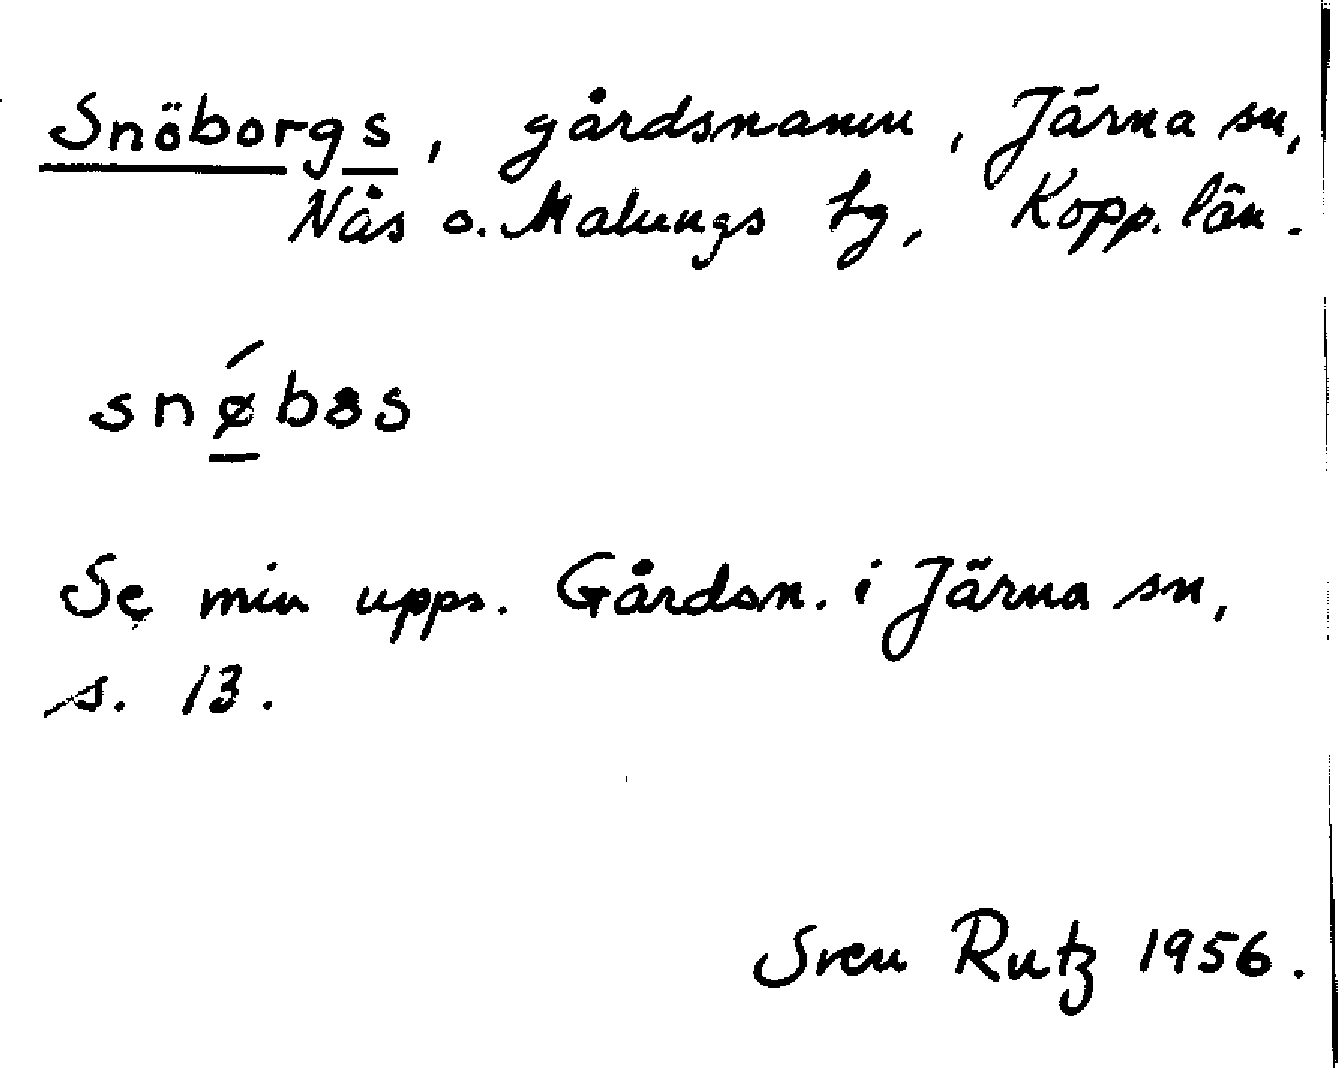 Snöborgs, gårdsnamn, Järna sn,
Nås o. Malungs tg, Kopp. län.
Se min upps. Gårdsn. i Järna sn,
s. 13.
Sven Rutz 1956.